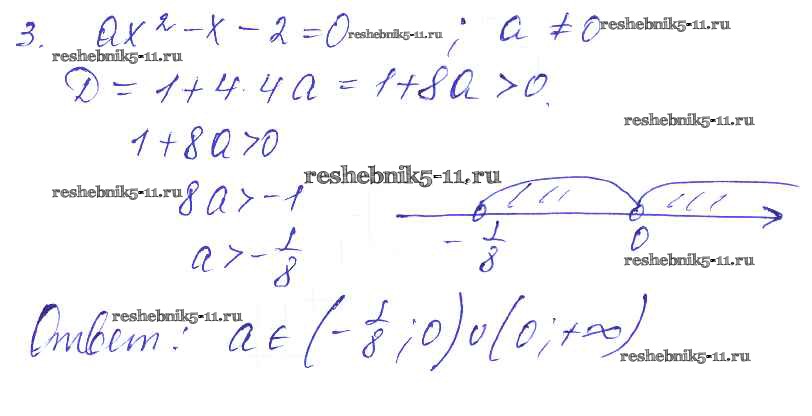 3. ax² - x - 2 = 0 ; a ≠ 0
reshebnik5-11.ru reshebnik5-11.ru
reshebnik5-11.ru
D = 1 + 4 · 4a = 1 + 8a > 0.
reshebnik5-11.ru
1 + 8a > 0
reshebnik5-11.ru
reshebnik5-11.ru
8a > -1
a > - 1/8
- 1/8 0
reshebnik5-11.ru
reshebnik5-11.ru
Ответ: a ∈ (- 1/8 ; 0) ∪ (0 ; +∞)
reshebnik5-11.ru